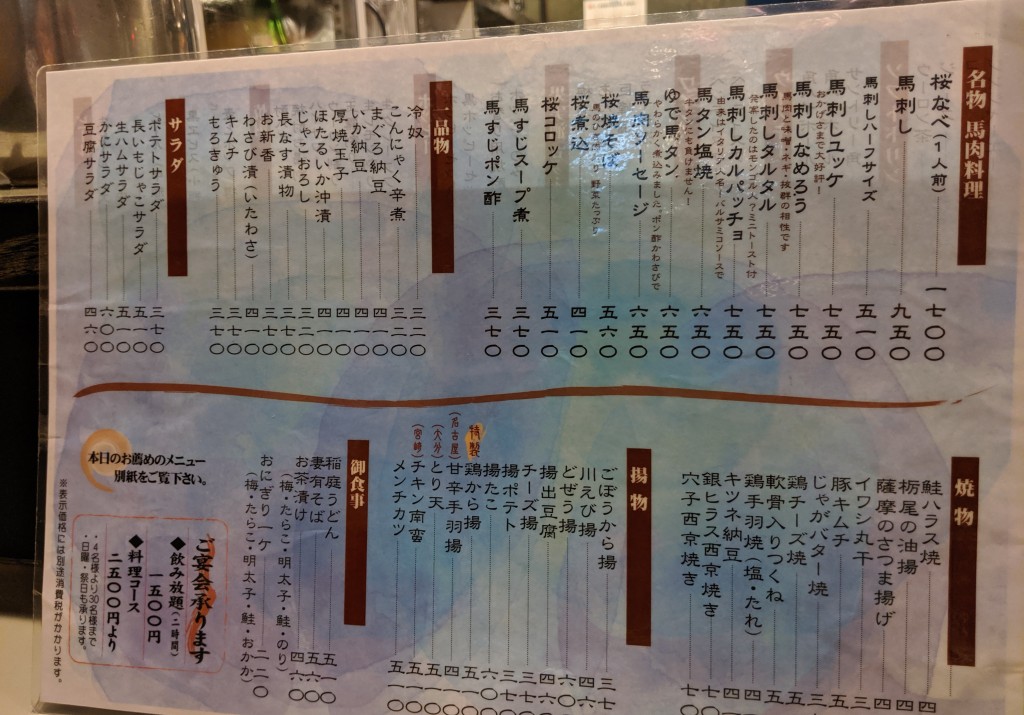 名物 馬肉料理
桜なべ(1人前) 一七〇〇
馬刺し 九五〇
馬刺しハーフサイズ 五一〇
馬刺しユッケ 七五〇
おかげさまで大好評!
馬刺しなめろう 七五〇
馬肉と味噌・ネギ・抜群の相性です
馬刺しタルタル 七五〇
発案したのはモンゴル人?ミニトースト付
馬刺しカルパッチョ 七五〇
由来はイタリア人モ。バルサミコソースで
馬タン塩焼 六五〇
牛タンにも負けません!
ゆで馬タン 六五〇
やわらかく煮込みました。ポン酢かわさびで
馬肉ソーセージ 六五〇
桜焼そば 五六〇
野菜たっぷり
桜煮込 四一〇
桜コロッケ 五一〇
馬すじスープ煮 三七〇
馬すじポン酢 三七〇
一品物
冷奴 三二〇
こんにゃく辛煮 三二〇
まぐろ納豆 四一〇
いか納豆 四一〇
厚焼玉子 四一〇
ほたるいか沖漬 四一〇
じゃこおろし 三二〇
長なす漬物 三七〇
お新香 四一〇
わさび漬(いたわさ) 四一〇
キムチ 三七〇
もろきゅう 三七〇
サラダ
ポテトサラダ 三七〇
長いもじゃこサラダ 五一〇
生ハムサラダ 五一〇
かにサラダ 六〇〇
豆腐サラダ 四六〇
焼物
鮭ハラス焼 四
栃尾の油揚 四
薩摩のさつま揚げ 四
イワシ丸干
豚キムチ 五
じゃがバター焼 三
鶏チーズ焼 五
軟骨入りつくね 五
鶏手羽焼(塩・たれ) 四
キツネ納豆 四
銀ヒラス西京焼き 七〇
穴子西京焼き 七〇
揚物
ごぼうから揚 三七
川えび揚 四
どぜう揚 六〇
揚出豆腐 四
チーズ揚
揚ポテト 三七
揚たこ 六〇
特製 鶏から揚 五一〇
(名古屋) 甘辛手羽揚
(大分) とり天 五一〇
(宮崎) チキン南蛮 五一〇
メンチカツ 五一〇
御食事
稲庭うどん 五一〇
妻有そば 五一〇
お茶漬け 四六〇
(梅・たらこ・明太子・鮭・のり)
おにぎり一ケ 二二〇
(梅・たらこ・明太子・鮭・おかか)
本日のお薦めのメニュー
別紙をご覧下さい。
ご宴会承ります
◆飲み放題(二時間)
一五〇〇円
◆料理コース
二五〇〇円より
・4名様より30名様まで
・日曜・祭日も承ります。
※表示価格には別途消費税がかかります。